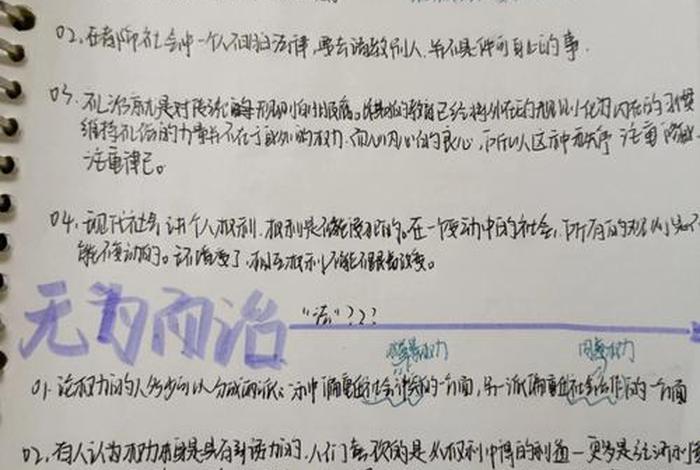 02、在都邻社会中一个人不知道法律,要去请教别人,并不是件可耻的事.
03、礼治就是对传统规则的服膺。长期的教育已经将外在的规则化为内在的习惯
维持礼俗的力量并不在于身外的权力,而在人内心的良心,所以这种秩序 注重
注重律己。
04、现代社会讲个人权利.权利是不能侵犯的。在一个变动中的社会,所有的规则是不
能不变动的。环境变了,相互权利不能不跟着改变。
无为而治 “法”???
横暴权力 同意权力
01、论权力的人多少可以分成两派:一派偏重在社会冲突的一方面,另一派偏重在社会合作的一方面
02、有人认为权力本身是具有引诱力的,人们喜欢的是从权利中得的利益一更多是经济利